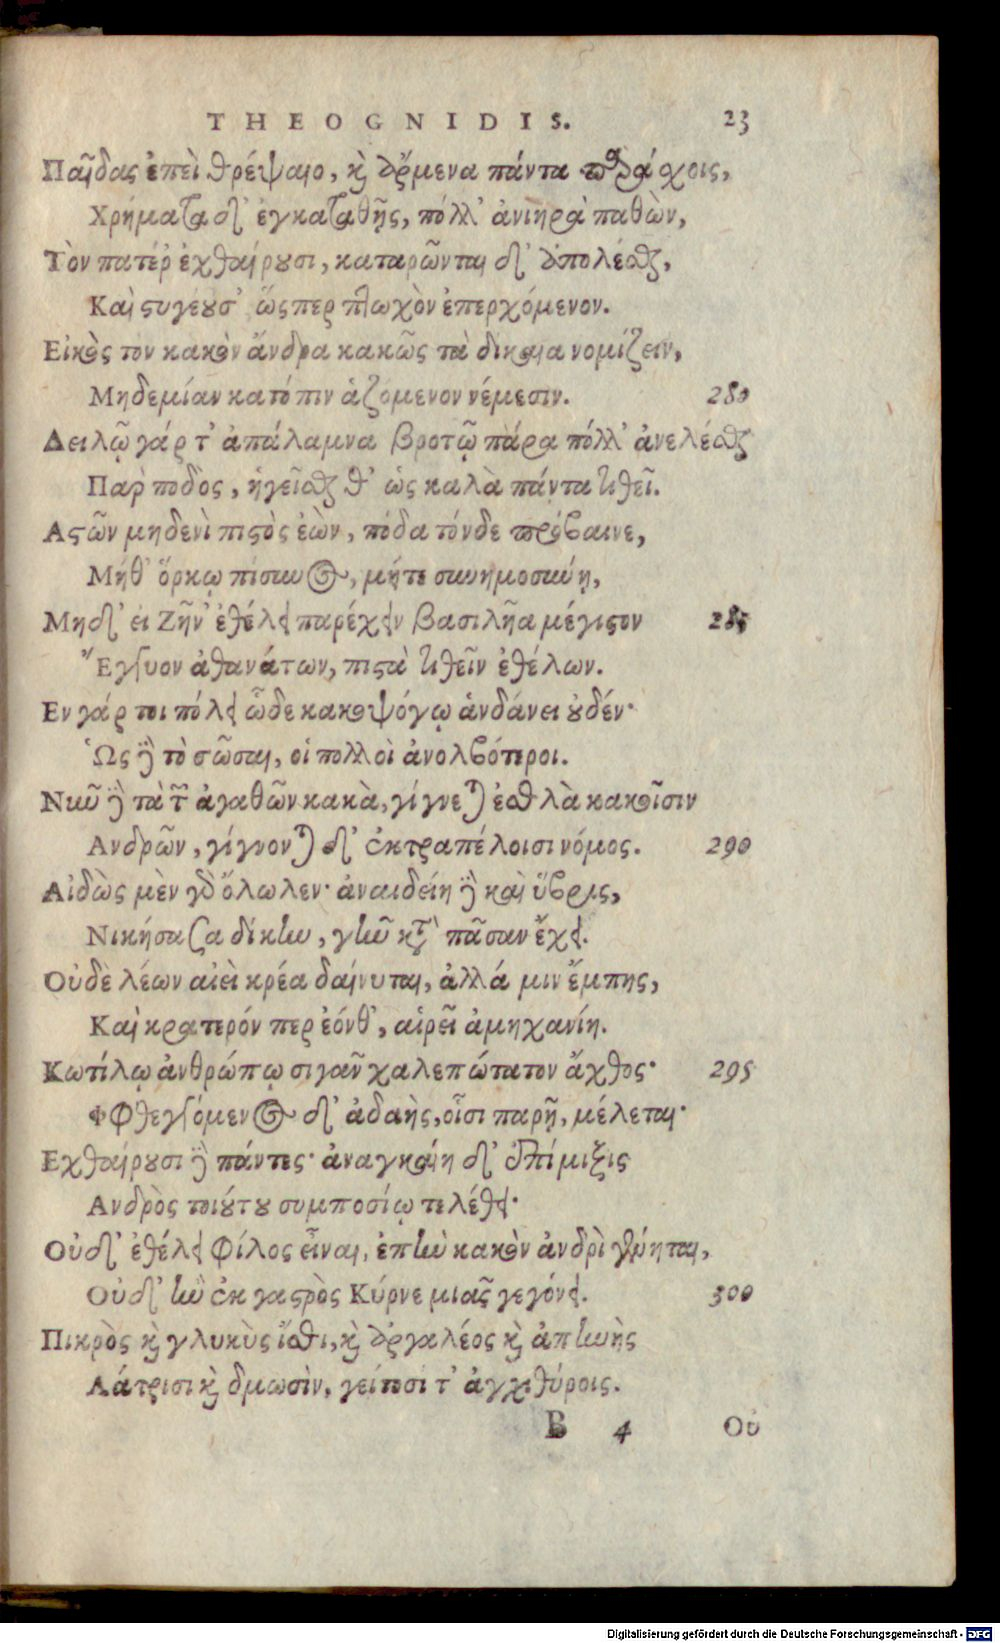 THEOGNIDIS. 23
Παῖδας ἐπεὶ θρέψαιο, καὶ ἄρμενα πάντα παράσχοις,
Χρήματα δ' ἐγκαταθῇς, πόλλ' ἀνιηρὰ παθὼν,
Τὸν πατέρ' ἐχθαίρουσι, καταρῶνται δ' ἀπολέσθαι,
Καὶ στυγέουσ' ὥσπερ πτωχὸν ἐπερχόμενον.
Εἰκὸς τον κακὸν ἄνδρα κακῶς τὰ δίκαια νομίζειν,
Μηδεμίαν κατόπιν ἁζόμενον νέμεσιν. 280
Δειλῷ γάρ τ' ἀπάλαμνα βροτῷ πάρα πόλλ' ἀνελέσθαι
Πὰρ ποδὸς, ἡγεῖσθαι θ' ὡς καλὰ πάντα τιθεῖ.
Αστῶν μηδενὶ πιστὸς ἐὼν, πόδα τόνδε πρόβαινε,
Μήθ' ὅρκῳ πίσυνος, μήτε συνημοσύνῃ,
Μηδ' εἰ Ζῆν' ἐθέλει παρέχειν βασιλῆα μέγιστον 285
Ἔγγυον ἀθανάτων, πιστὰ τιθεῖν ἐθέλων.
Εν γάρ τοι πόλει ὧδε κακοψόγῳ ἁνδάνει οὐδέν·
Ὡς δὲ τὸ σῶσαι, οἱ πολλοὶ ἀνολβότεροι.
Νῦν δὲ τὰ τῶν ἀγαθῶν κακὰ, γίγνεται ἐσθλὰ κακοῖσιν
Ανδρῶν, γίγνονται δ' ἐκτραπέλοισι νόμος. 290
Αἰδὼς μὲν γὰρ ὄλωλεν· ἀναιδείη δὲ καὶ ὕβρις,
Νικήσασα δίκην, γῆν κατὰ πᾶσαν ἔχει.
Οὐδὲ λέων αἰεὶ κρέα δαίνυται, ἀλλά μιν ἔμπης,
Καὶ κρατερόν περ ἐόνθ', αἱρεῖ ἀμηχανίη.
Κωτίλῳ ἀνθρώπῳ σιγᾶν χαλεπώτατον ἄχθος· 295
Φθεγγόμενος δ' ἀδαὴς, οἷσι παρῇ, μέλεται·
Εχθαίρουσι δὲ πάντες· ἀναγκαίη δ' ἐπίμιξις
Ανδρὸς τοιούτου συμποσίῳ τελέθει·
Οὐδ' ἐθέλει φίλος εἶναι, ἐπὴν κακὸν ἀνδρὶ γένηται,
Οὐδ' ἢν ἐκ γαστρὸς Κύρνε μιᾶς γεγόνει. 300
Πικρὸς καὶ γλυκὺς ἴσθι, καὶ ἀργαλέος καὶ ἀπηνὴς
Λάτρισι καὶ δμωσὶν, γείτοσί τ' ἀγχιθύροις.
B 4 Οὐ
Digitalisierung gefördert durch die Deutsche Forschungsgemeinschaft - DFG